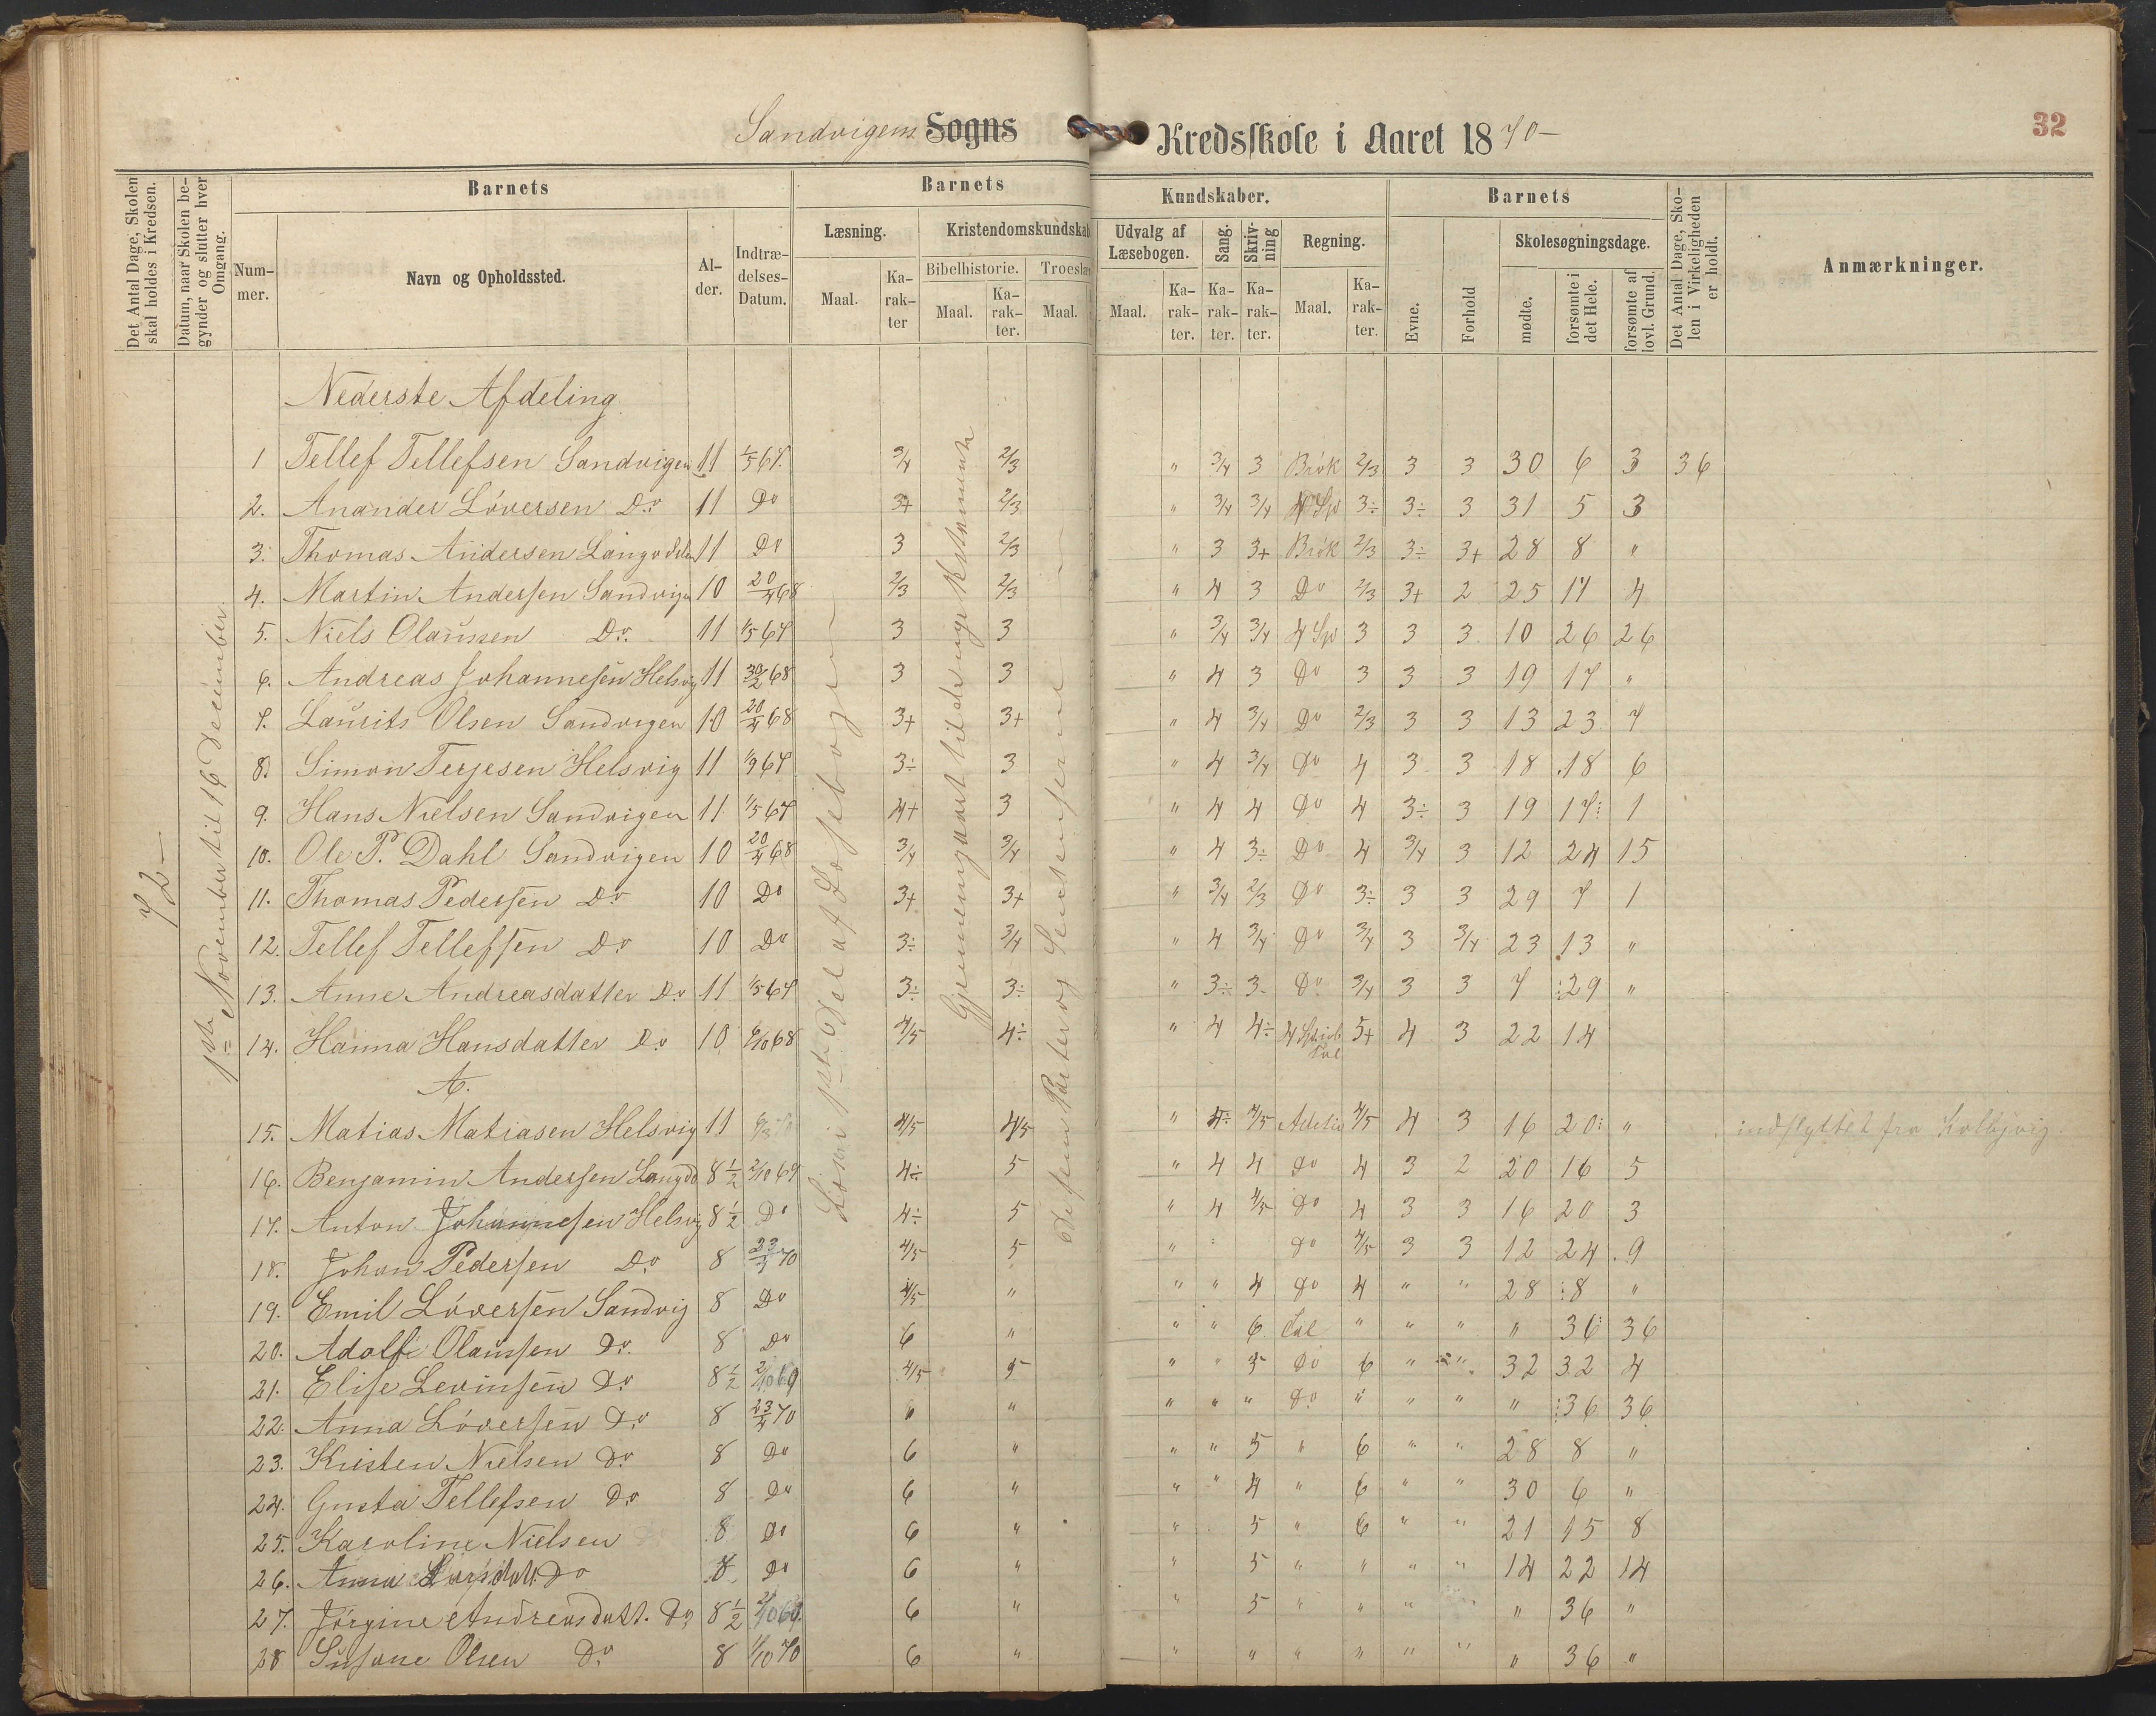 Sandvigens Sogns Kredsskole i Aaret 1870–
32
Det Antal Dage, Skolen skal holdes i Kredsen.
Datum, naar Skolen begynder og slutter hver Omgang.
Barnets
Barnets
Kundskaber.
Barnets
Det Antal Dage, Skolen i Virkeligheden er holdt.
Anmærkninger.
Nummer.
Navn og Opholdssted.
Alder.
Indtrædelses-Datum.
Læsning.
Kristendomskundskab
Udvalg af Læsebogen.
Sang.
Skrivning
Regning.
Evne.
Forhold
Skolesøgningsdage.
Maal.
Karakter
Bibelhistorie.
Troeslær
Maal.
Karakter.
Maal.
Maal.
Karakter.
Karakter.
Karakter.
Maal.
Karakter.
mødte.
forsømte i det Hele.
forsømte af lovl. Grund.
72–
1ste November til 16 December.
Læser 1ste Del af Læsebogen
Nederste Afdeling.
1 Tellef Tellefsen Sandvigen 11 1/5 67. 3/4 2/3 " 3/4 3 Brøk 2/3 3 3 30 6 3 36
2. Anander Løversen Do 11 Do 3+ 2/3 " 3/4 3/4 4 Sp 3÷ 3÷ 3 31 5 3
3. Thomas Andersen 11 Do 3 2/3 " 3 3+ Brøk 2/3 3÷ 3+ 28 8 "
4. Martin Andersen Sandvigen 10 20/4 68 2/3 2/3 " 4 3 Do 2/3 3+ 2 25 11 4
5. Niels Olaussen Do. 11 1/5 67 3 3 " 3/4 3/4 4 Sp 3 3 3 10 26 26
6. Andreas Johannesen Helsvig 11 68 3 3 " 4 3 Do 3 3 3 19 17 "
7. Laurits Olsen Sandvigen 10 20/4 68 3+ 3+ " 4 3/4 Do 2/3 3 3 13 23 7
8. Simon Terjesen Helsvig 11 1/9 67 3÷ 3 " 4 3/4 Do 4 3 3 18 18 6
9. Hans Nielsen Sandvigen 11 1/5 67 4+ 3 " 4 4 Do 4 3÷ 3 19 17 1
10. Ole P. Dahl Sandvigen 10 20/4 68 3/4 3/4 " 4 3÷ Do 4 3/4 3 12 24 15
11. Thomas Pedersen Do 10 Do 3+ 3+ " 3/4 2/3 Do 3÷ 3 3 29 7 1
12. Tellef Tellefsen Do 10 Do 3÷ 3/4 " 4 3/4 Do 3/4 3 3/4 23 13 "
13. Anne Andreasdatter Do 11 1/5 67 3÷ 3÷ " 3÷ 3 Do 3/4 3 3 7 29 "
14. Hanna Hansdatter Do 10 6/10 68 4/5 4÷ " 4 4÷ 5+ 4 3 22 14
A.
15. Matias Matiasen Helsvig 11 4/5 4/5 " 4÷ 4/5 4/5 4 3 16 20 " indflyttet fra Kolbjvig
16. Benjamin Andersen 8½ 2/10 69 4÷ 5 " 4 4 Do 4 3 2 20 16 5
17. Anton Johannesen Helsvig 8½ Do 4÷ 5 " 4 4/5 Do 4 3 3 16 20 3
18. Johan Pedersen Do 8 23/4 70 4/5 5 " Do 4/5 3 3 12 24 9
19. Emil Løversen Sandvig 8 Do 4/5 " " " 4 Do 4 " " 28 8 "
20. Adolf Olaussen Do. 8 Do 6 " " " 6 Tal " " " " 36 36
21. Elise Levinsen Do 8½ 2/10 69 4/5 5 " " 5 Do 6 " " 32 32 4
22. Anna Løversen Do 8 23/4 70 " " " " Do " " " " 36 36
23. Kristen Nielsen Do 8 Do 6 " " " 5 " 6 " " 28 8 "
24. Gusta Tellefsen Do 8 Do 6 " " " 4 " 6 " " 30 6 "
25. Karoline Nielsen 8 Do 6 " " 5 " 6 " " 21 15 8
26. Anna Larsdatt. Do 8 Do 6 " " 5 " " " " 14 22 14
27. Jørgine Andreasdatt. Do 8½ 2/10 69. 6 " " 5 " " " " " 36 "
28 Susane Olsen Do 8 1/10 70 6 " " " " " " " " 36 "